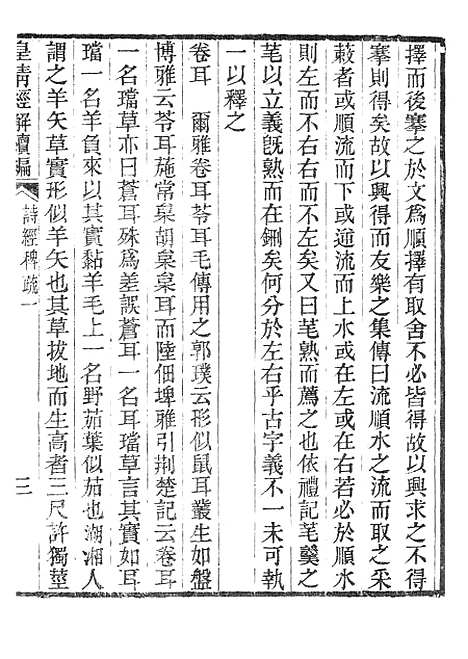 擇而後搴之於文爲順擇有取舍不必皆得故以興求之不得
搴則得矣故以興得而友樂之集傳曰流順水之流而取之采
蔌者或順流而下或逆流而上水或在左右若必於順水
則左而不右右而不左矣又曰芼熟而薦之也依禮記芼羹之
芼以立義旣熟而在鉶矣何分於左右乎古字義不一未可執
一以釋之
卷耳　爾雅卷耳苓耳毛傳用之郭璞云形似鼠耳叢生如盤
博雅云苓耳葹常枲胡枲枲耳而陸佃埤雅引荆楚記云卷耳
一名璫草亦曰蒼耳殊爲差誤蒼耳一名耳璫草言其實如耳
璫一名羊負來以其實黏羊毛上一名野茄葉似茄也湖湘人
謂之羊矢草實形似羊矢也其草拔地而生高者三尺許獨莖
皇清經解續編
詩經稗疏一
三